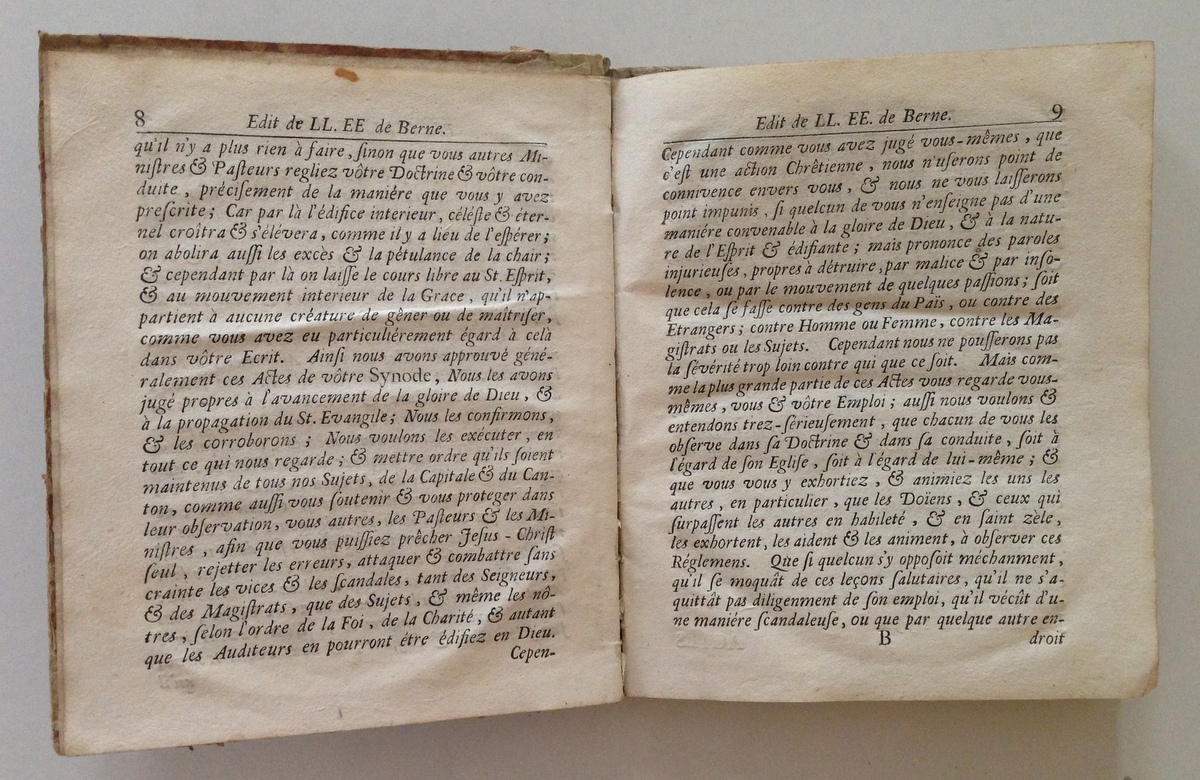 8
Edit de LL. EE de Berne.
qu'il n'y a plus rien à faire, ſinon que vous autres Mi-
niſtres & Paſteurs regliez vôtre Doctrine & vôtre con-
duite, préciſement de la maniére que vous y avez
preſcrite; Car par là l'édifice interieur, céléſte & éter-
nel croîtra & s'élévera, comme il y a lieu de l'eſpérer;
on abolira auſſi les excès & la pétulance de la chair;
& cependant par là on laiſſe le cours libre au St. Eſprit,
& au mouvement interieur de la Grace, qu'il n'ap-
partient à aucune créature de gêner ou de maîtriſer,
comme vous avez eu particuliérement égard à celà
dans vôtre Ecrit. Ainſi nous avons approuvé géné-
ralement ces Actes de vôtre Synode, Nous les avons
jugé propres à l'avancement de la gloire de Dieu, &
à la propagation du St. Evangile; Nous les confirmons,
& les corroborons; Nous voulons les exécuter, en
tout ce qui nous regarde; & mettre ordre qu'ils ſoient
maintenus de tous nos Sujets, de la Capitale & du Can-
ton, comme auſſi vous ſoutenir & vous proteger dans
leur obſervation, vous autres, les Paſteurs & les Mi-
niſtres, afin que vous puiſſiez prêcher Jeſus-Chriſt
ſeul, rejetter les erreurs, attaquer & combattre ſans
crainte les vices & les ſcandales, tant des Seigneurs,
& des Magiſtrats, que des Sujets, & même les nô-
tres, ſelon l'ordre de la Foi, de la Charité, & autant
que les Auditeurs en pourront étre édifiez en Dieu.
Cepen-
Edit de LL. EE. de Berne.
9
Cependant comme vous avez jugé vous-mêmes, que
c'eſt une action Chrêtienne, nous n'uſerons point de
connivence envers vous, & nous ne vous laiſſerons
point impunis, ſi quelcun de vous n'enſeigne pas d'une
maniére convenable à la gloire de Dieu, & à la natu-
re de l'Eſprit & édifiante; mais prononce des paroles
injurieuſes, propres à détruire, par malice & par inſo-
lence, ou par le mouvement de quelques paſſions; ſoit
que cela ſe faſſe contre des gens du Païs, ou contre des
Etrangers; contre Homme ou Femme, contre les Ma-
giſtrats ou les Sujets. Cependant nous ne pouſſerons pas
la ſévérité trop loin contre qui que ce ſoit. Mais com-
me la plus grande partie de ces Actes vous regarde vous-
mêmes, vous & vôtre Emploi; auſſi nous voulons &
entendons trez-ſérieuſement, que chacun de vous les
obſerve dans ſa Doctrine & dans ſa conduite, ſoit à
l'égard de ſon Egliſe, ſoit à l'égard de lui-même; &
que vous vous y exhortiez, & animiez les uns les
autres, en particulier, que les Doïens, & ceux qui
ſurpaſſent les autres en habileté, & en ſaint zèle,
les exhortent, les aident & les animent, à obſerver ces
Réglemens. Que ſi quelcun s'y oppoſoit méchanment,
qu'il ſe moquât de ces leçons ſalutaires, qu'il ne s'a-
quittât pas diligenment de ſon emploi, qu'il vécût d'u-
ne maniére ſcandaleuſe, ou que par quelque autre en-
B
droit